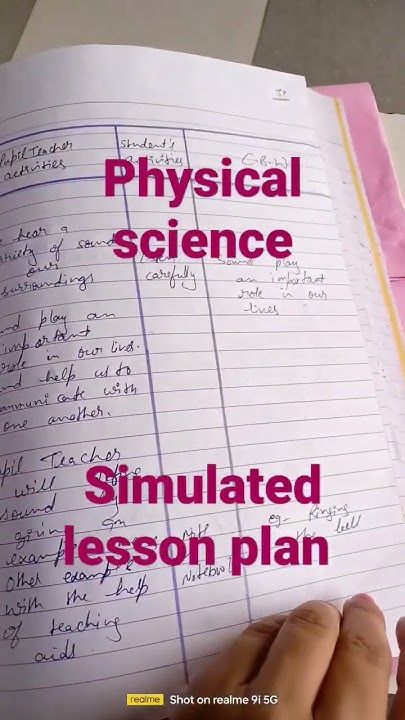 39
Pupil Teacher
activities
Student's
activities
C.B.W
Physical
science
hear a
variety of sound
our
surroundings
carefully
Sound play
an important
role in our
lives
play an
important
role in our lives.
and help us to
communicate with
one another.
Teacher
will
sound
giving an
example
Other example
with the help
of teaching
aids
Note
Notebook
eg - Ringing
the bell
Simulated
lesson plan
realme
Shot on realme 9i 5G